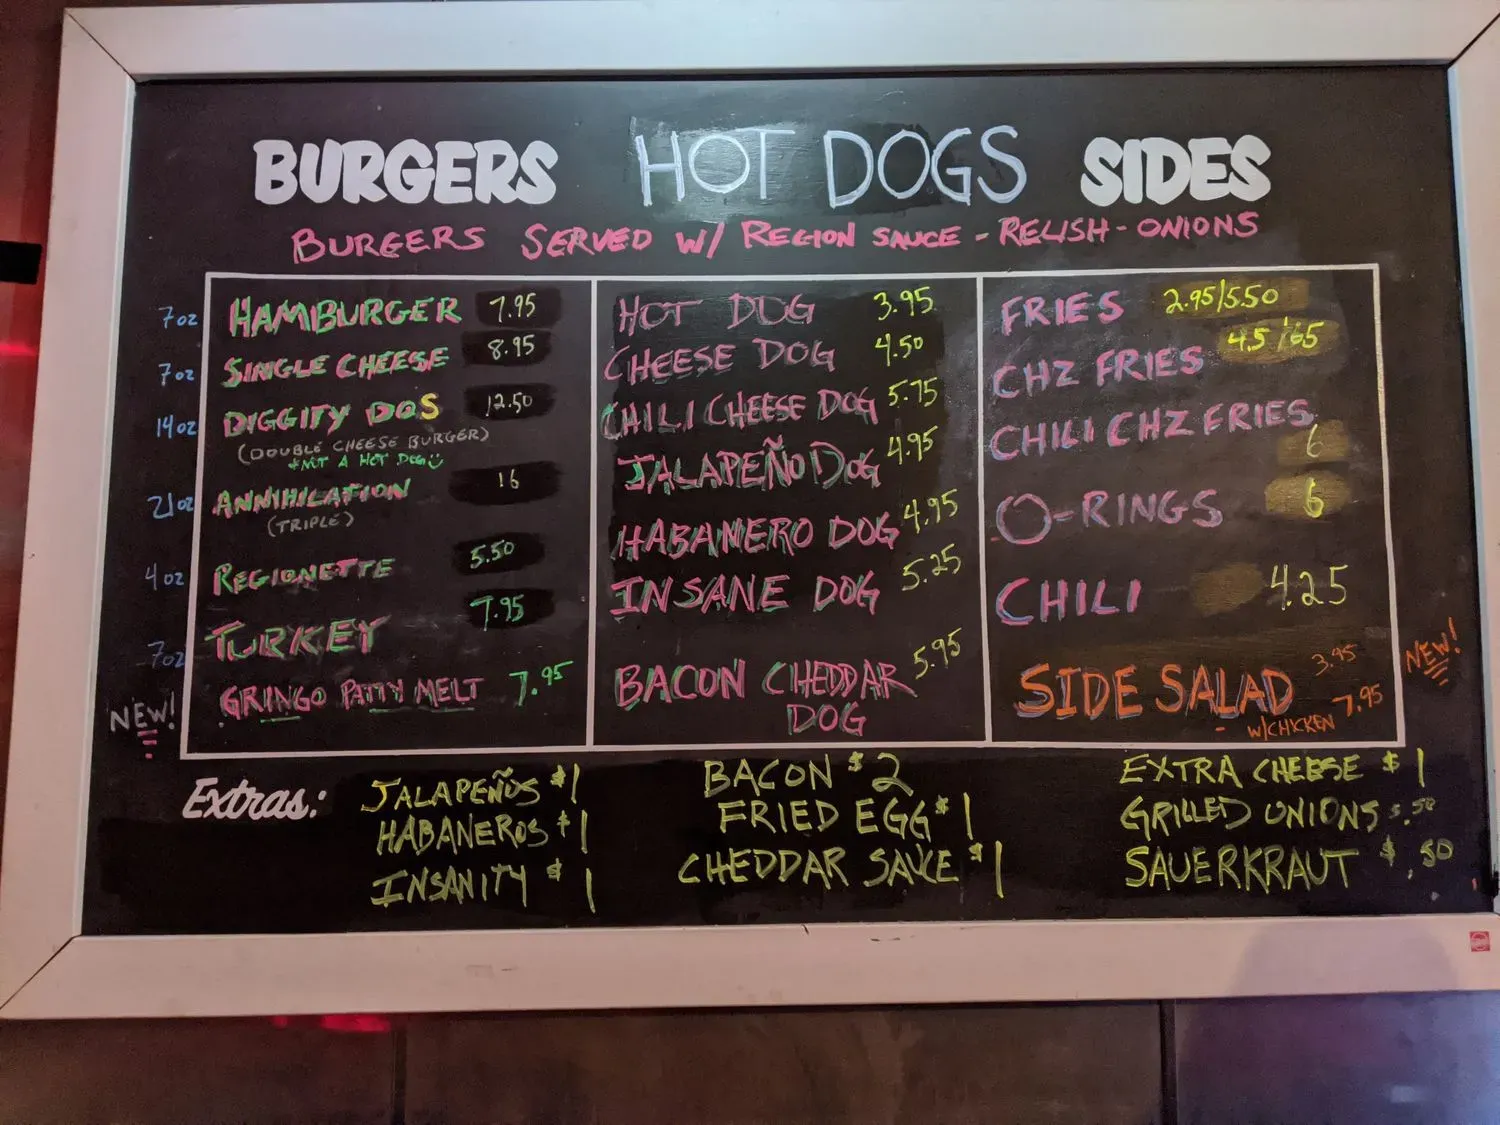 BURGERS HOT DOGS SIDES
BURGERS SERVED W/ REGION SAUCE - RELISH - ONIONS
7oz HAMBURGER 7.95
7oz SINGLE CHEESE 8.95
14oz DIGGITY DOS 12.50
(DOUBLE CHEESE BURGER)
*NOT A HOT DOG
21oz ANNIHILATION 16
(TRIPLE)
4oz REGIONETTE 5.50
7oz TURKEY 7.95
NEW! GRINGO PATTY MELT 7.95
HOT DOG 3.95
CHEESE DOG 4.50
CHILI CHEESE DOG 5.75
JALAPEÑO DOG 4.95
HABANERO DOG 4.95
INSANE DOG 5.25
BACON CHEDDAR 5.95
DOG
FRIES 2.95/5.50
CHZ FRIES 4.5/65
CHILI CHZ FRIES
6
O-RINGS 6
CHILI 4.25
SIDE SALAD 3.95 NEW!
W/CHICKEN 7.95
Extras: JALAPEÑOS $1
HABANEROS $1
INSANITY $1
BACON $2
FRIED EGG $1
CHEDDAR SAUCE $1
EXTRA CHEESE $1
GRILLED ONIONS $.50
SAUERKRAUT $.50